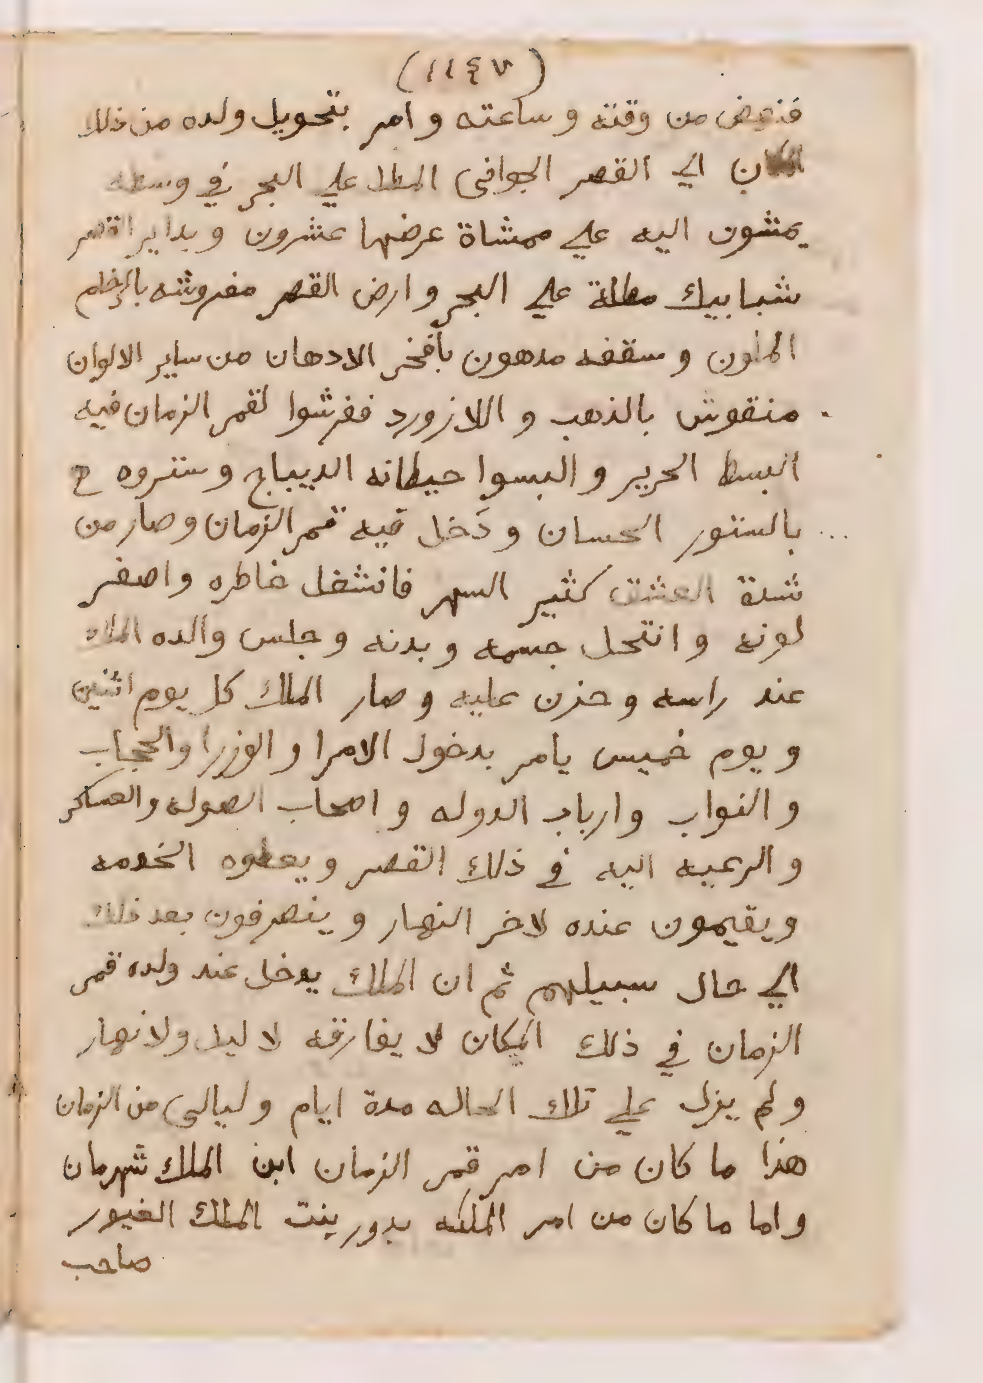 (١١٤٧)
فنهض من وقته و ساعته و امر بتحويل ولده من ذلك
المكان الي القصر الجوافى المطل علي البحر في وسطه
يمشون اليه علي ممشاة عرضها عشرون و بداير القصر
شبابيك مطلة علي البحر و ارض القصر مفروشه بالرخام
الملون و سقفه مدهون بأفخر الادهان من ساير الالوان
منقوش بالذهب و اللازورد ففرشوا لقمر الزمان فيه
البسط الحرير و البسوا حيطانه الديباج و ستروه ح
بالستور الحسان و دَخل فيه قمر الزمان و صار من
شدة العشق كثير السهر فانشغل خاطره و اصفر
لونه و انتحل جسمه و بدنه و جلس والده الملك
عند راسه و حزن عليه و صار الملك كل يوم اثنين
و يوم خميس يامر بدخول الامرا و الوزرا والحجاب
و النواب و ارباب الدوله و اصحاب الصوله والعساكر
و الرعيه اليه في ذلك القصر و يعطوه الخدمه
و يقيمون عنده لاخر النهار و ينصرفون بعد ذلك
الي حال سبيلهم ثم ان الملك يدخل عند ولده قمر
الزمان في ذلك المكان لا يفارقه لا ليل ولا نهار
و لم يزل علي تلك الحاله مدة ايام و ليالى من الزمان
هذا ما كان من امر قمر الزمان ابن الملك شهرمان
و اما ما كان من امر الملكه بدور بنت الملك الغيور
صاحب